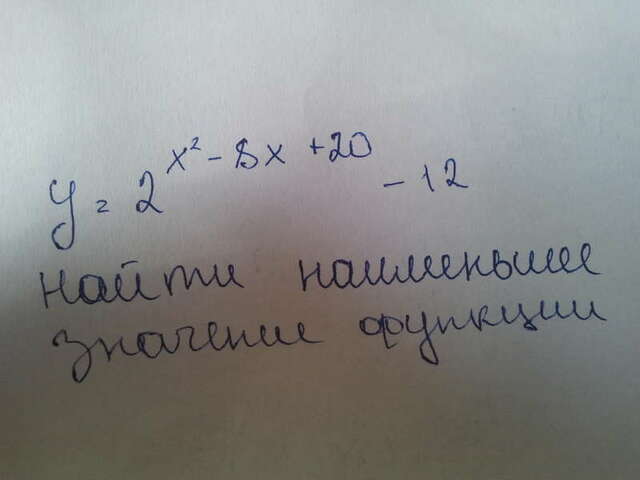 y = 2^{x² - 8x + 20} - 12
найти наименьшее
значение функции